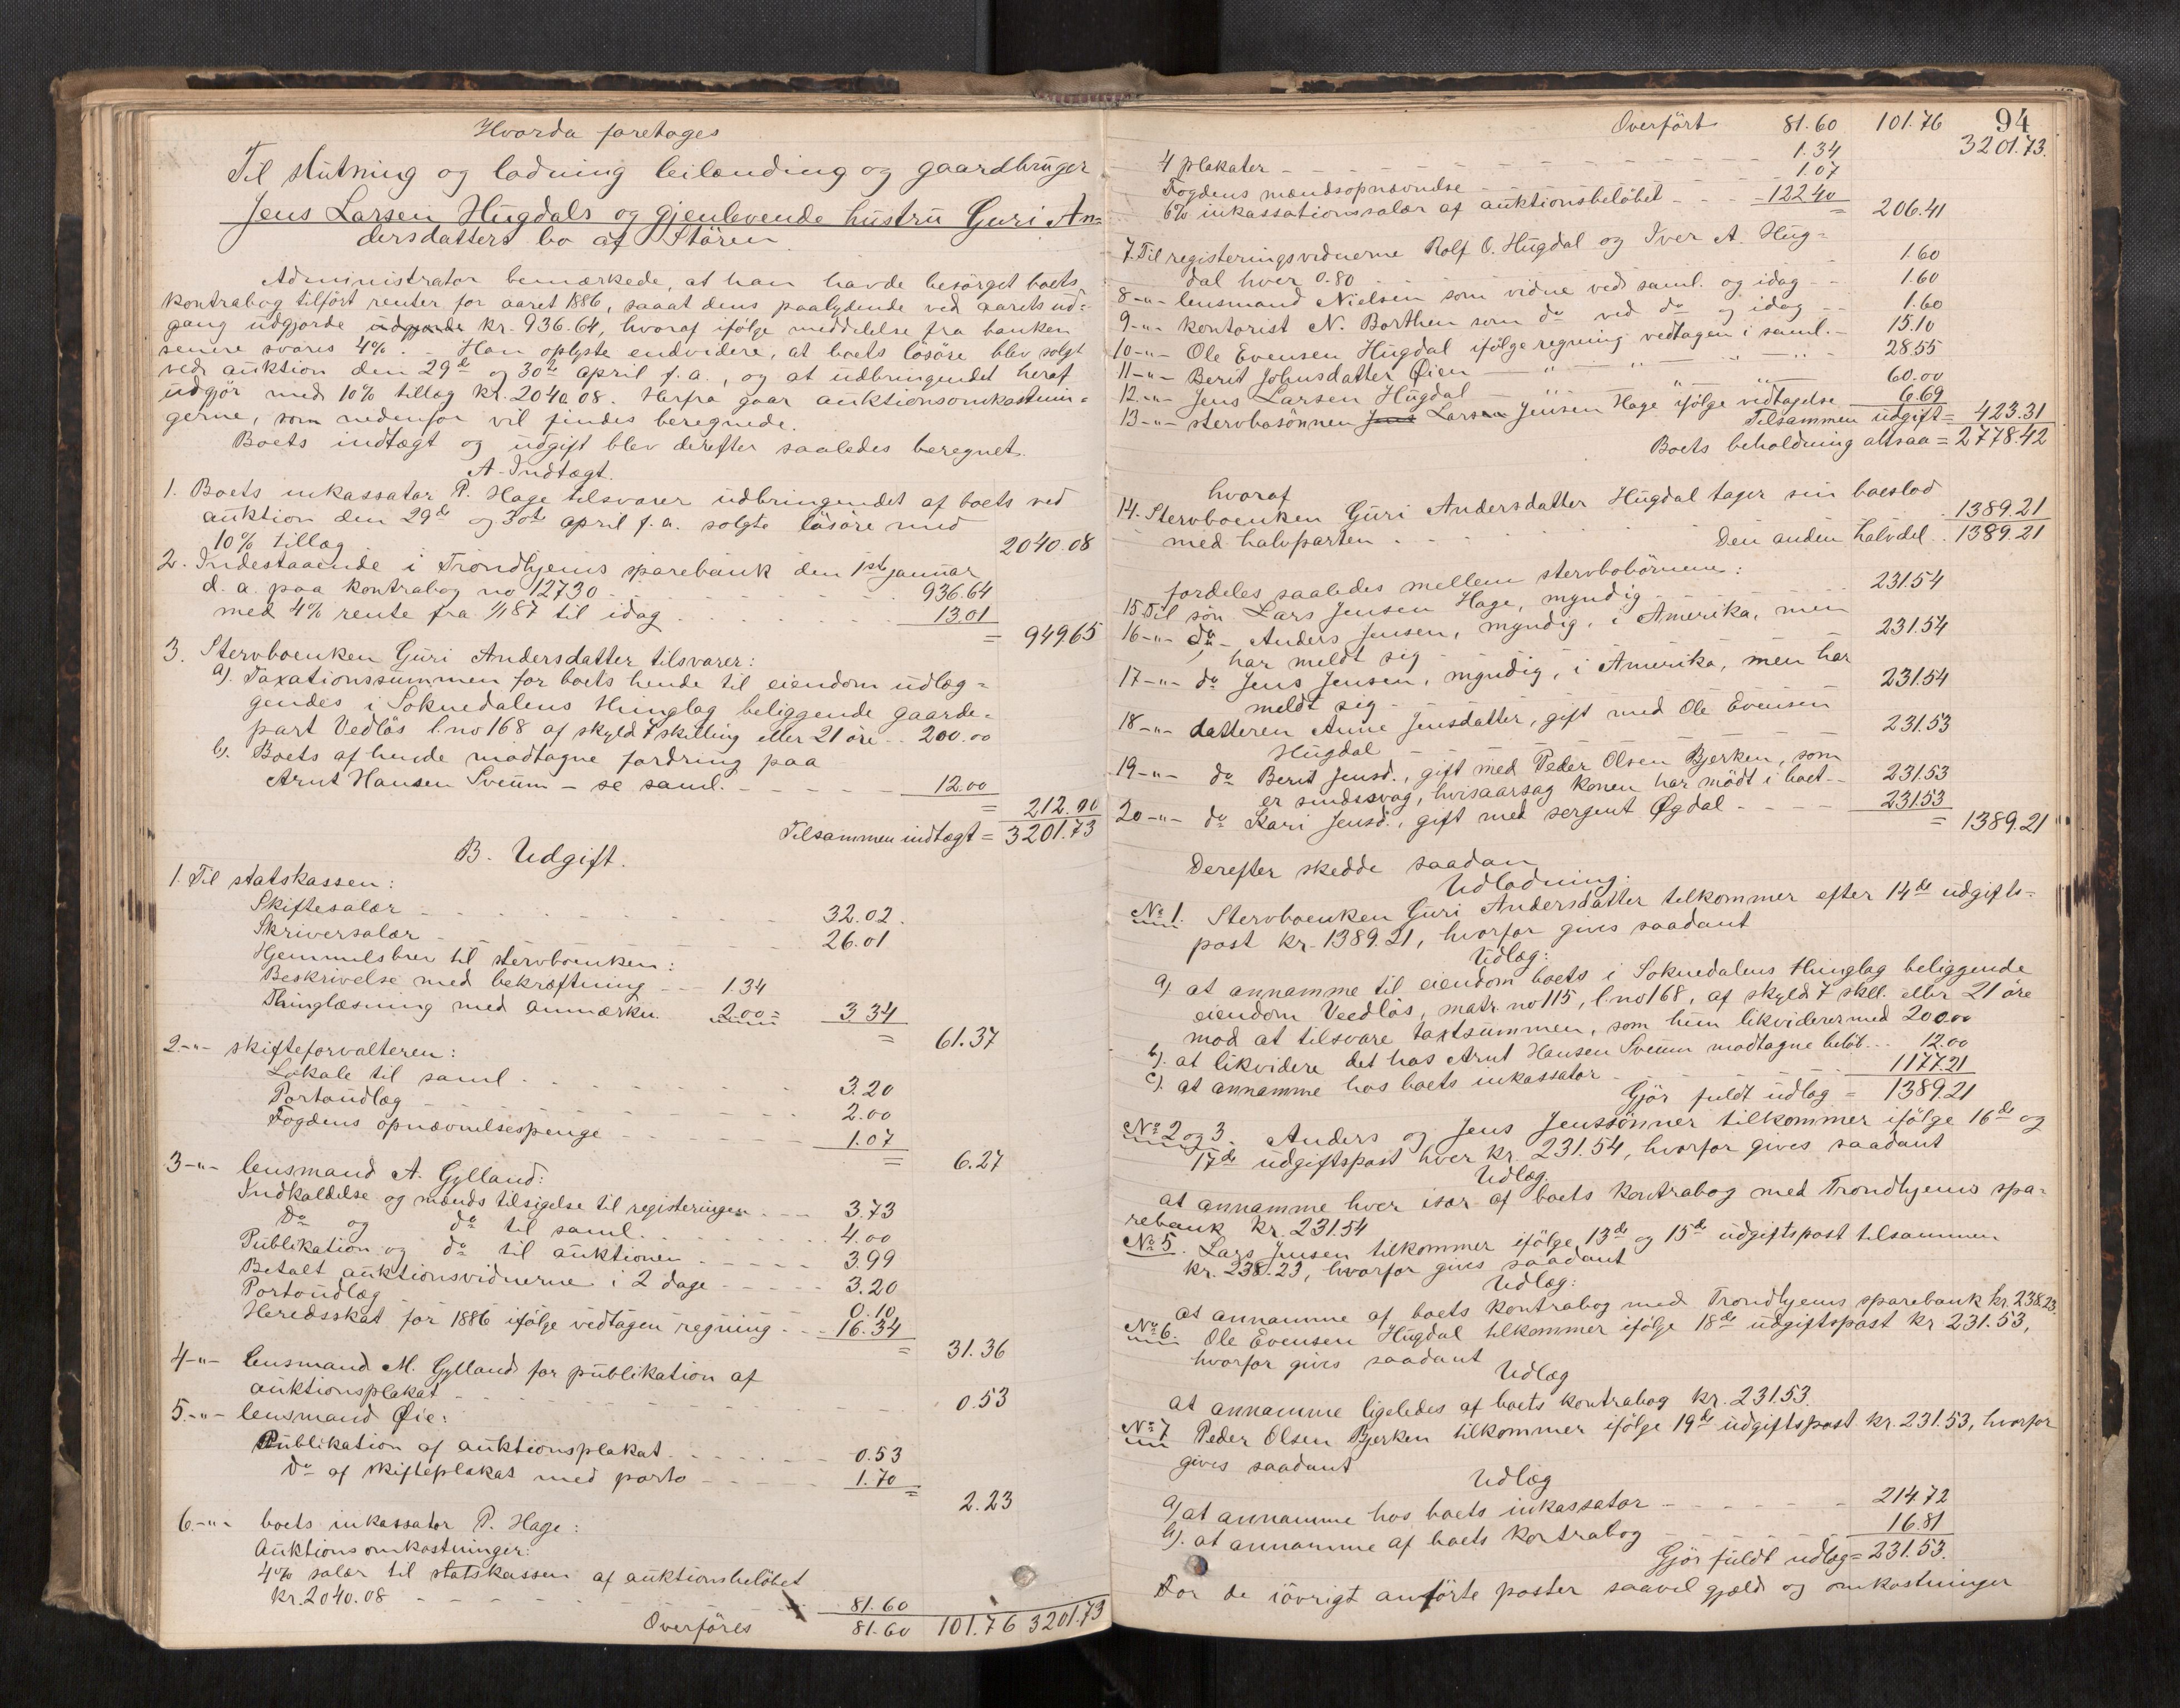 Hvorda foretoges
Til slutning og lodning leilænding og gaardbruger
Jens Larsen Hugdals og gjenlevende hustru Guri An=
dersdatters bo af Stören.
Administrator bemærkede, at han havde besörget boets
kontrabog tilfört renter for aaret 1886, saaat dens paalydende ved aarets ud=
gang udgjorde udgjorde kr. 936.64, hvoraf ifölge meddelelse fra banken
senere svares 4%. - Han oplyste endvidere, at boets lösöre blev solgt
ved auktion den 29de og 30te april f.a., og at udbringendet heraf
udgjör med 10% tillæg kr. 2040.08. Herfra gaar auktionsomkostnin=
gerne, som nedenfor vil findes beregnede.
Boets indtægt og udgift blev derefter saaledes beregnet.
A. Indtægt.
1. Boets inkassator P. Hage tilsvarer udbringendet af boets ved
auktion den 29de og 30te april f.a. solgte lösöre med
10% tillæg 2040.08
2. Indestaaende i Trondhjems sparebank den 1ste januar
d.a. paa kontrabog no 12730 . . . 936.64
med 4% rente fra 1/1 87 til idag . . . 13.01
= 949.65
3. Stervboenken Guri Andersdatter tilsvarer:
a). Taxationssummen for boets hende til eiendom udlæg=
gendes i Soknedalens thinglag beliggende gaarde=
part Vedlös l.no 168 af skyld 7 skilling eller 21 öre . . 200.00
b). Boets af hende modtagne fordring paa
Arnt Hansen Sveum - se saml. - - - 12.00
= 212.00
Tilsammen indtægt = 3201.73
B. Udgift.
1. Til statskassen:
Skiftesalær - - - 32.02.
Skriversalær - - - 26.01
Hjemmelsbrev til stervboenken:
Beskrivelse med bekræftning - - 1.34
Thinglæsning med anmærkn. 2.00 = 3.34
= 61.37
2-"- skifteforvalteren:
Lokale til saml. . . . 3.20
Portoudlæg - - - 2.00
Fogdens opnævnelsespenge - - - 1.07
= 6.27
3-"- lensmand A. Gylland:
Indkaldelse og mænds tilsigelse til registeringen . - - 3.73
Do og do til saml. . . . 4.00
Publikation og do til auktionen - - - 3.99
Betalt auktionsvidnerne i 2 dage - - - 3.20
Portoudlæg 0.10
Heredsskat for 1886 ifölge vedtagen regning . - . 16.34
= 31.36
4-"- lensmand M. Gylland for publikation af
auktionsplakat - - - 0.53
5.-"- lensmand Øie:
Publikation af auktionsplakat . . . 0.53
Do af skifteplakat med porto - - - 1.70
= 2.23
6.-"- boets inkassator P. Hage:
Auktionsomkostninger:
4% salær til statskassen af auktionsbelöbet
kr. 2040.08 - - - 81.60
Overföres 81.60 101.76 3201.73
94
Overfört 81.60 101.76 3201.73.
4 plakater - - - 1.34
Fogdens mændsopnævnelse - - - 1.07
6% inkassationssalær af auktionsbelöbet - - - 122.40
= 206.41
7. Til registeringsvidnerne Rolf O. Hugdal og Iver A. Hug=
dal hver 0.80 1.60
8-"- lensmand Nielsen som vidne ved saml. og idag - - 1.60
9-"- kontorist N. Borthen som do ved do og idag - - 1.60
10-"- Ole Evensen Hugdal ifölge regning vedtagen i saml. - 15.10
11-"- Berit Johnsdatter Øien - " - " - " - " - 28.55
12.-"- Jens Larsen Hugdal - " - " - " - 60.00
13-"- stervbosönnen Jens Larsen Jensen Hage ifölge vedtagelse 6.69
Tilsammen udgift = 423.31
Boets beholdning altsaa = 2778.42
hvoraf
14. Stervboenken Guri Andersdatter Hugdal tager sin boeslod
med halvparten . . . 1389.21
Den anden halvdel . . 1389.21
fordeles saaledes mellem stervbobörnene:
15. Til sön Lars Jensen Hage, myndig - 231.54
16-"- do - Anders Jensen, myndig, i Amerika, men
har meldt sig - 231.54
17-"- do Jens Jensen, myndig, i Amerika, men har
meldt sig - 231.54
18-"- datteren Anne Jensdatter, gift med Ole Evensen
Hugdal - - - 231.53
19-"- do Berit Jensd., gift med Peder Olsen Bjerken, som
er sindssvag, hvisaarsag konen har mödt i boet - - 231.53
20-"- do Kari Jensd., gift med sergent Øgdal - - - 231.53
= 1389.21
Derefter skedde saadan
Udlodning:
No 1. Stervboenken Guri Andersdatter tilkommer efter 14de udgifts=
post kr. 1389.21, hvorfor gives saadant
Udlæg:
a). at annamme til eiendom boets i Soknedalens thinglag beliggende
eiendom Veedlös, matr. no 115, l.no 168, af skyld 7 skll. eller 21 öre
mod at tilsvare taxtsummen, som hun likviderer med 200.00
b). at likvidere det hos Arnt Hansen Sveum modtagne belöb . . 12.00
c). at annamme hos boets inkassator - - - 1177.21
Gjör fuldt udlæg = 1389.21
No 2 og 3. Anders og Jens Jenssönner tilkommer ifölge 16de og
17de udgiftspost hver kr. 231.54, hvorfor gives saadant
Udlæg
at annamme hver især af boets kontrabog med Trondhjems spa=
rebank kr. 231.54
No 5. Lars Jensen tilkommer ifölge 13de og 15de udgiftspost tilsammen
kr. 238.23, hvorfor gives saadant
Udlæg:
at annamme af boets kontrabog med Trondhjems sparebank kr. 238.23.
No 6. Ole Evensen Hugdal tilkommer ifölge 18de udgiftspost kr 231.53,
hvorfor gives saadant
Udlæg
at annamme ligeledes af boets kontrabog kr. 231.53.
No 7 Peder Olsen Bjerken tilkommer ifölge 19de udgiftspost kr. 231.53, hvorfor
gives saadant
Udlæg
a) at annamme hos boets inkassator - - - 214.72
b). at annamme af boets kontrabog - - - 16.81
Gjör fuldt udlæg = 231.53.
For de iövrigt anförte poster saavel gjæld og omkostninger